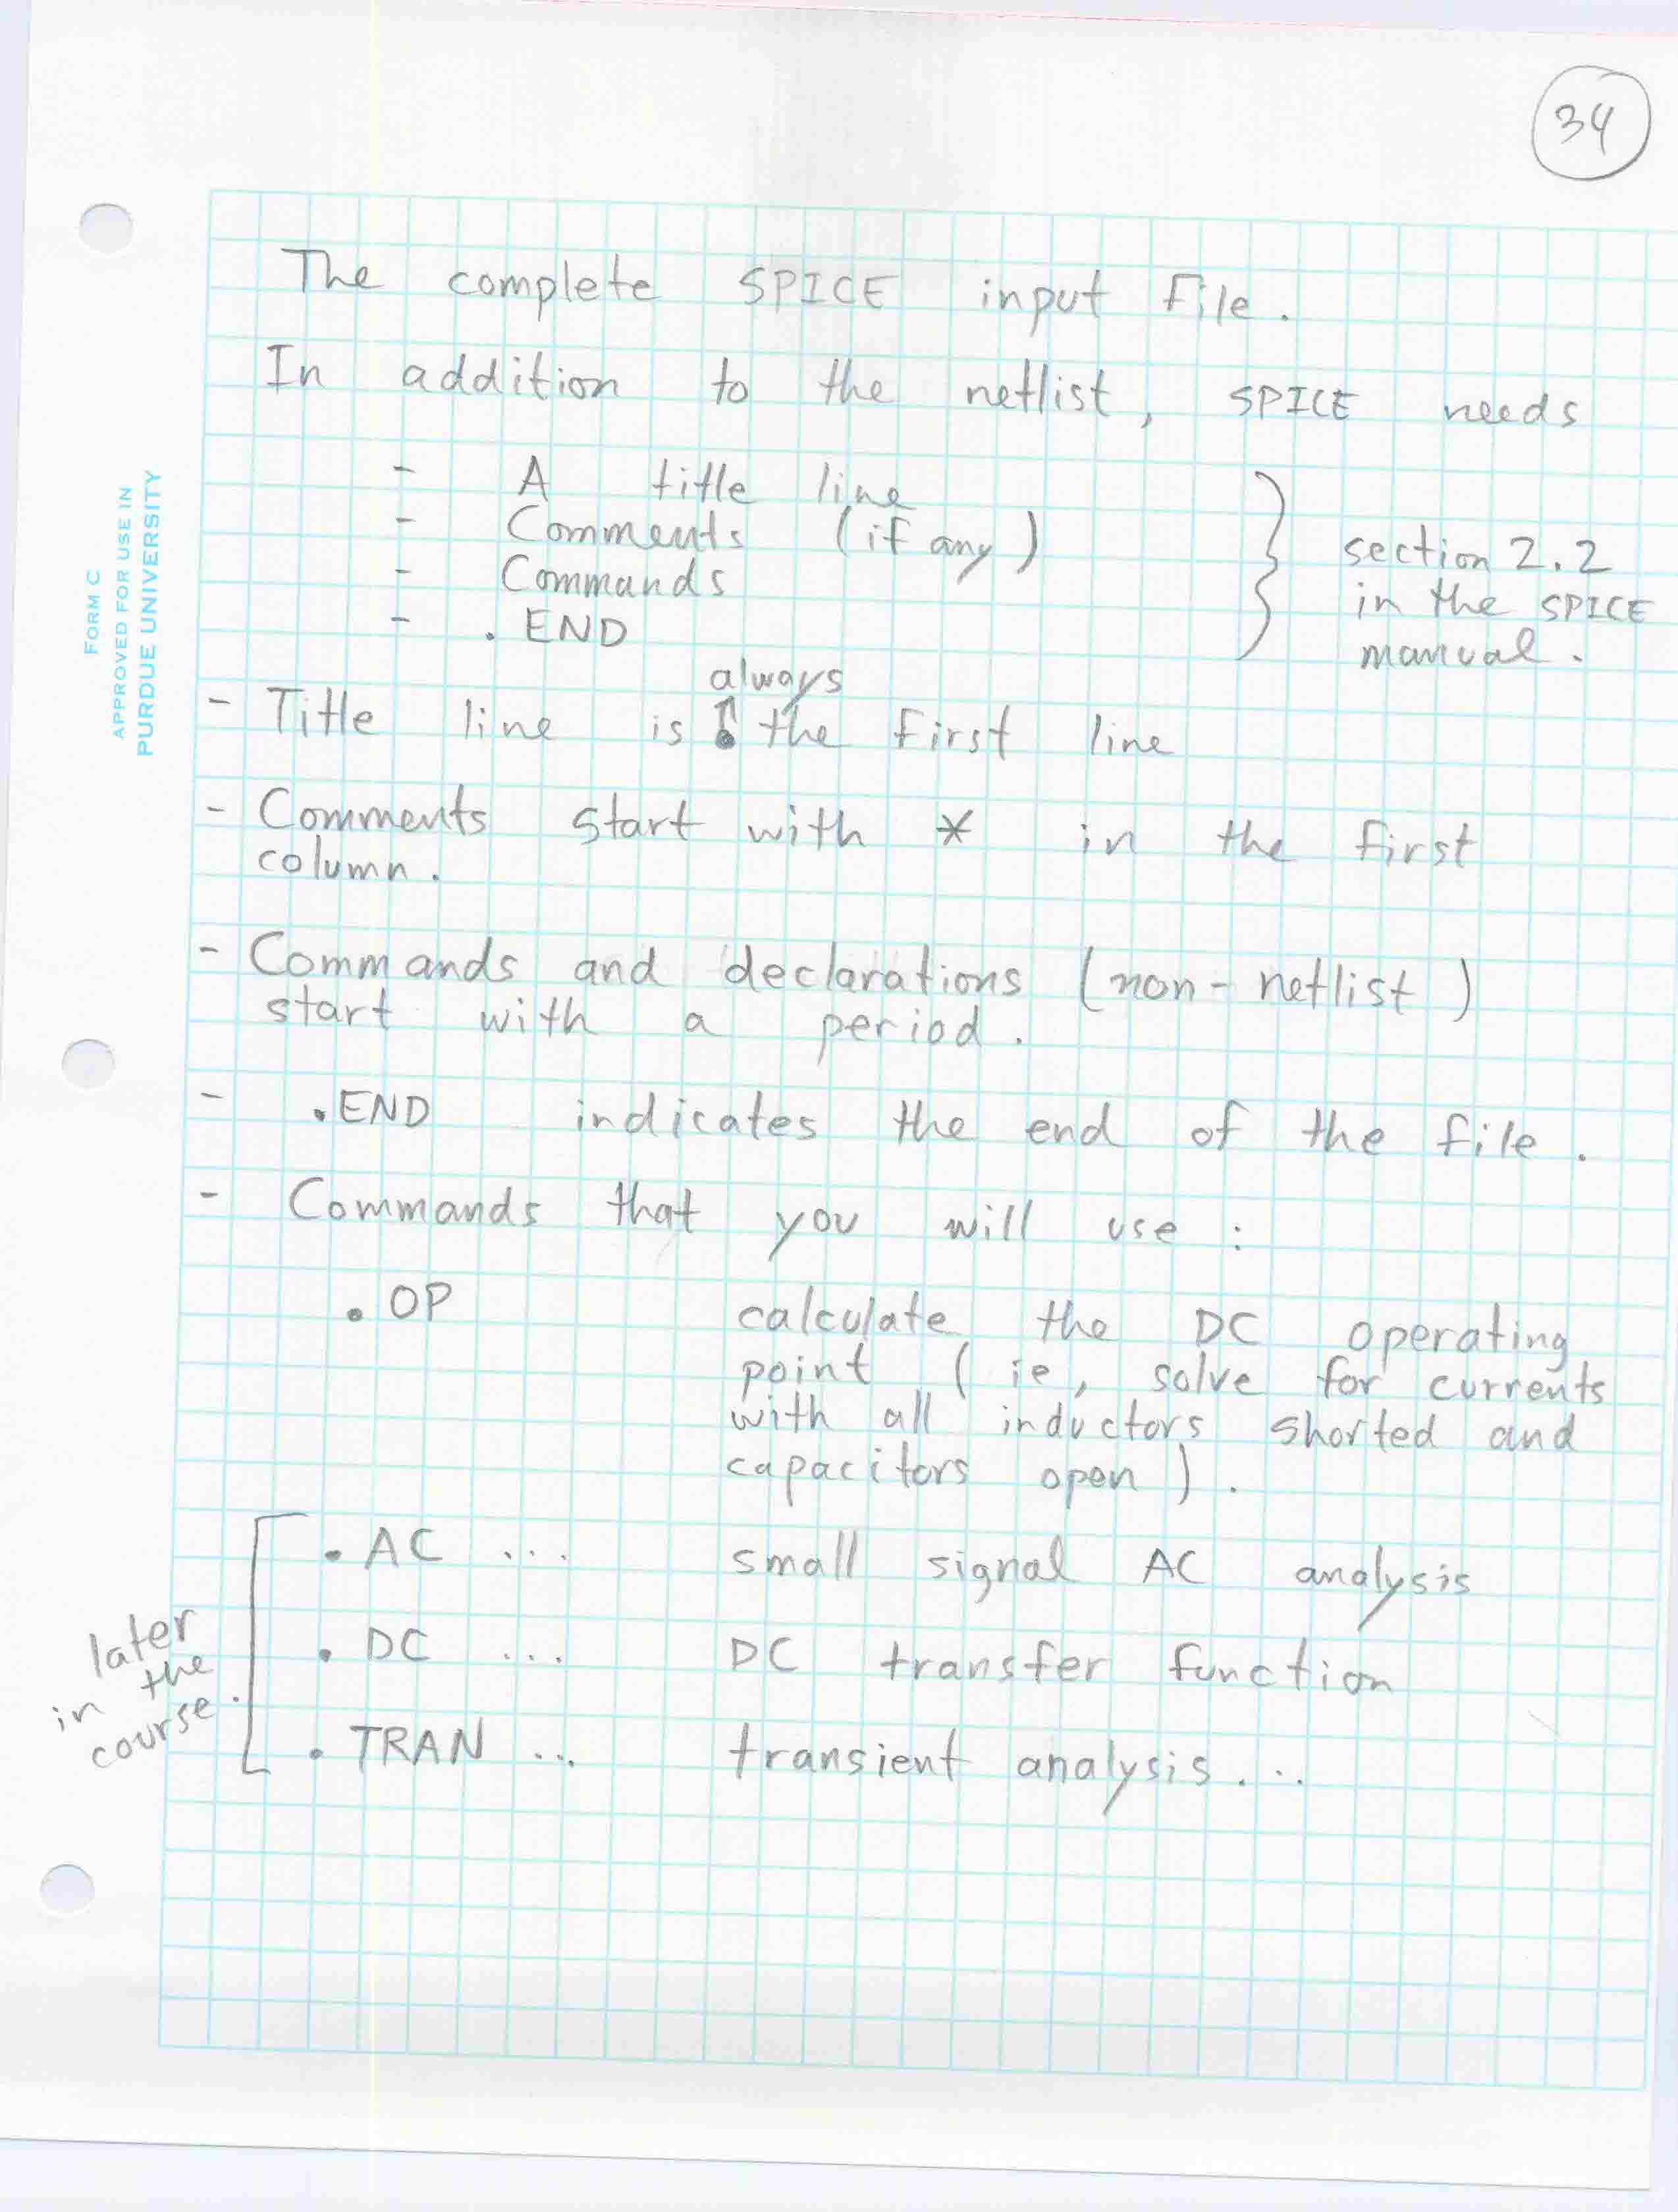 34
The complete SPICE input file.
In addition to the netlist, SPICE needs
- A title line
- Comments (if any)
- Commands
- .END
section 2.2
in the SPICE
manual.
always
- Title line is the first line
- Comments start with * in the first
column.
- Commands and declarations (non-netlist)
start with a period.
- .END indicates the end of the file.
- Commands that you will use:
.OP calculate the DC operating
point (ie, solve for currents
with all inductors shorted and
capacitors open).
.AC ... small signal AC analysis
.DC ... DC transfer function
.TRAN ... transient analysis...
later
in the
course.
FORM C
APPROVED FOR USE IN
PURDUE UNIVERSITY